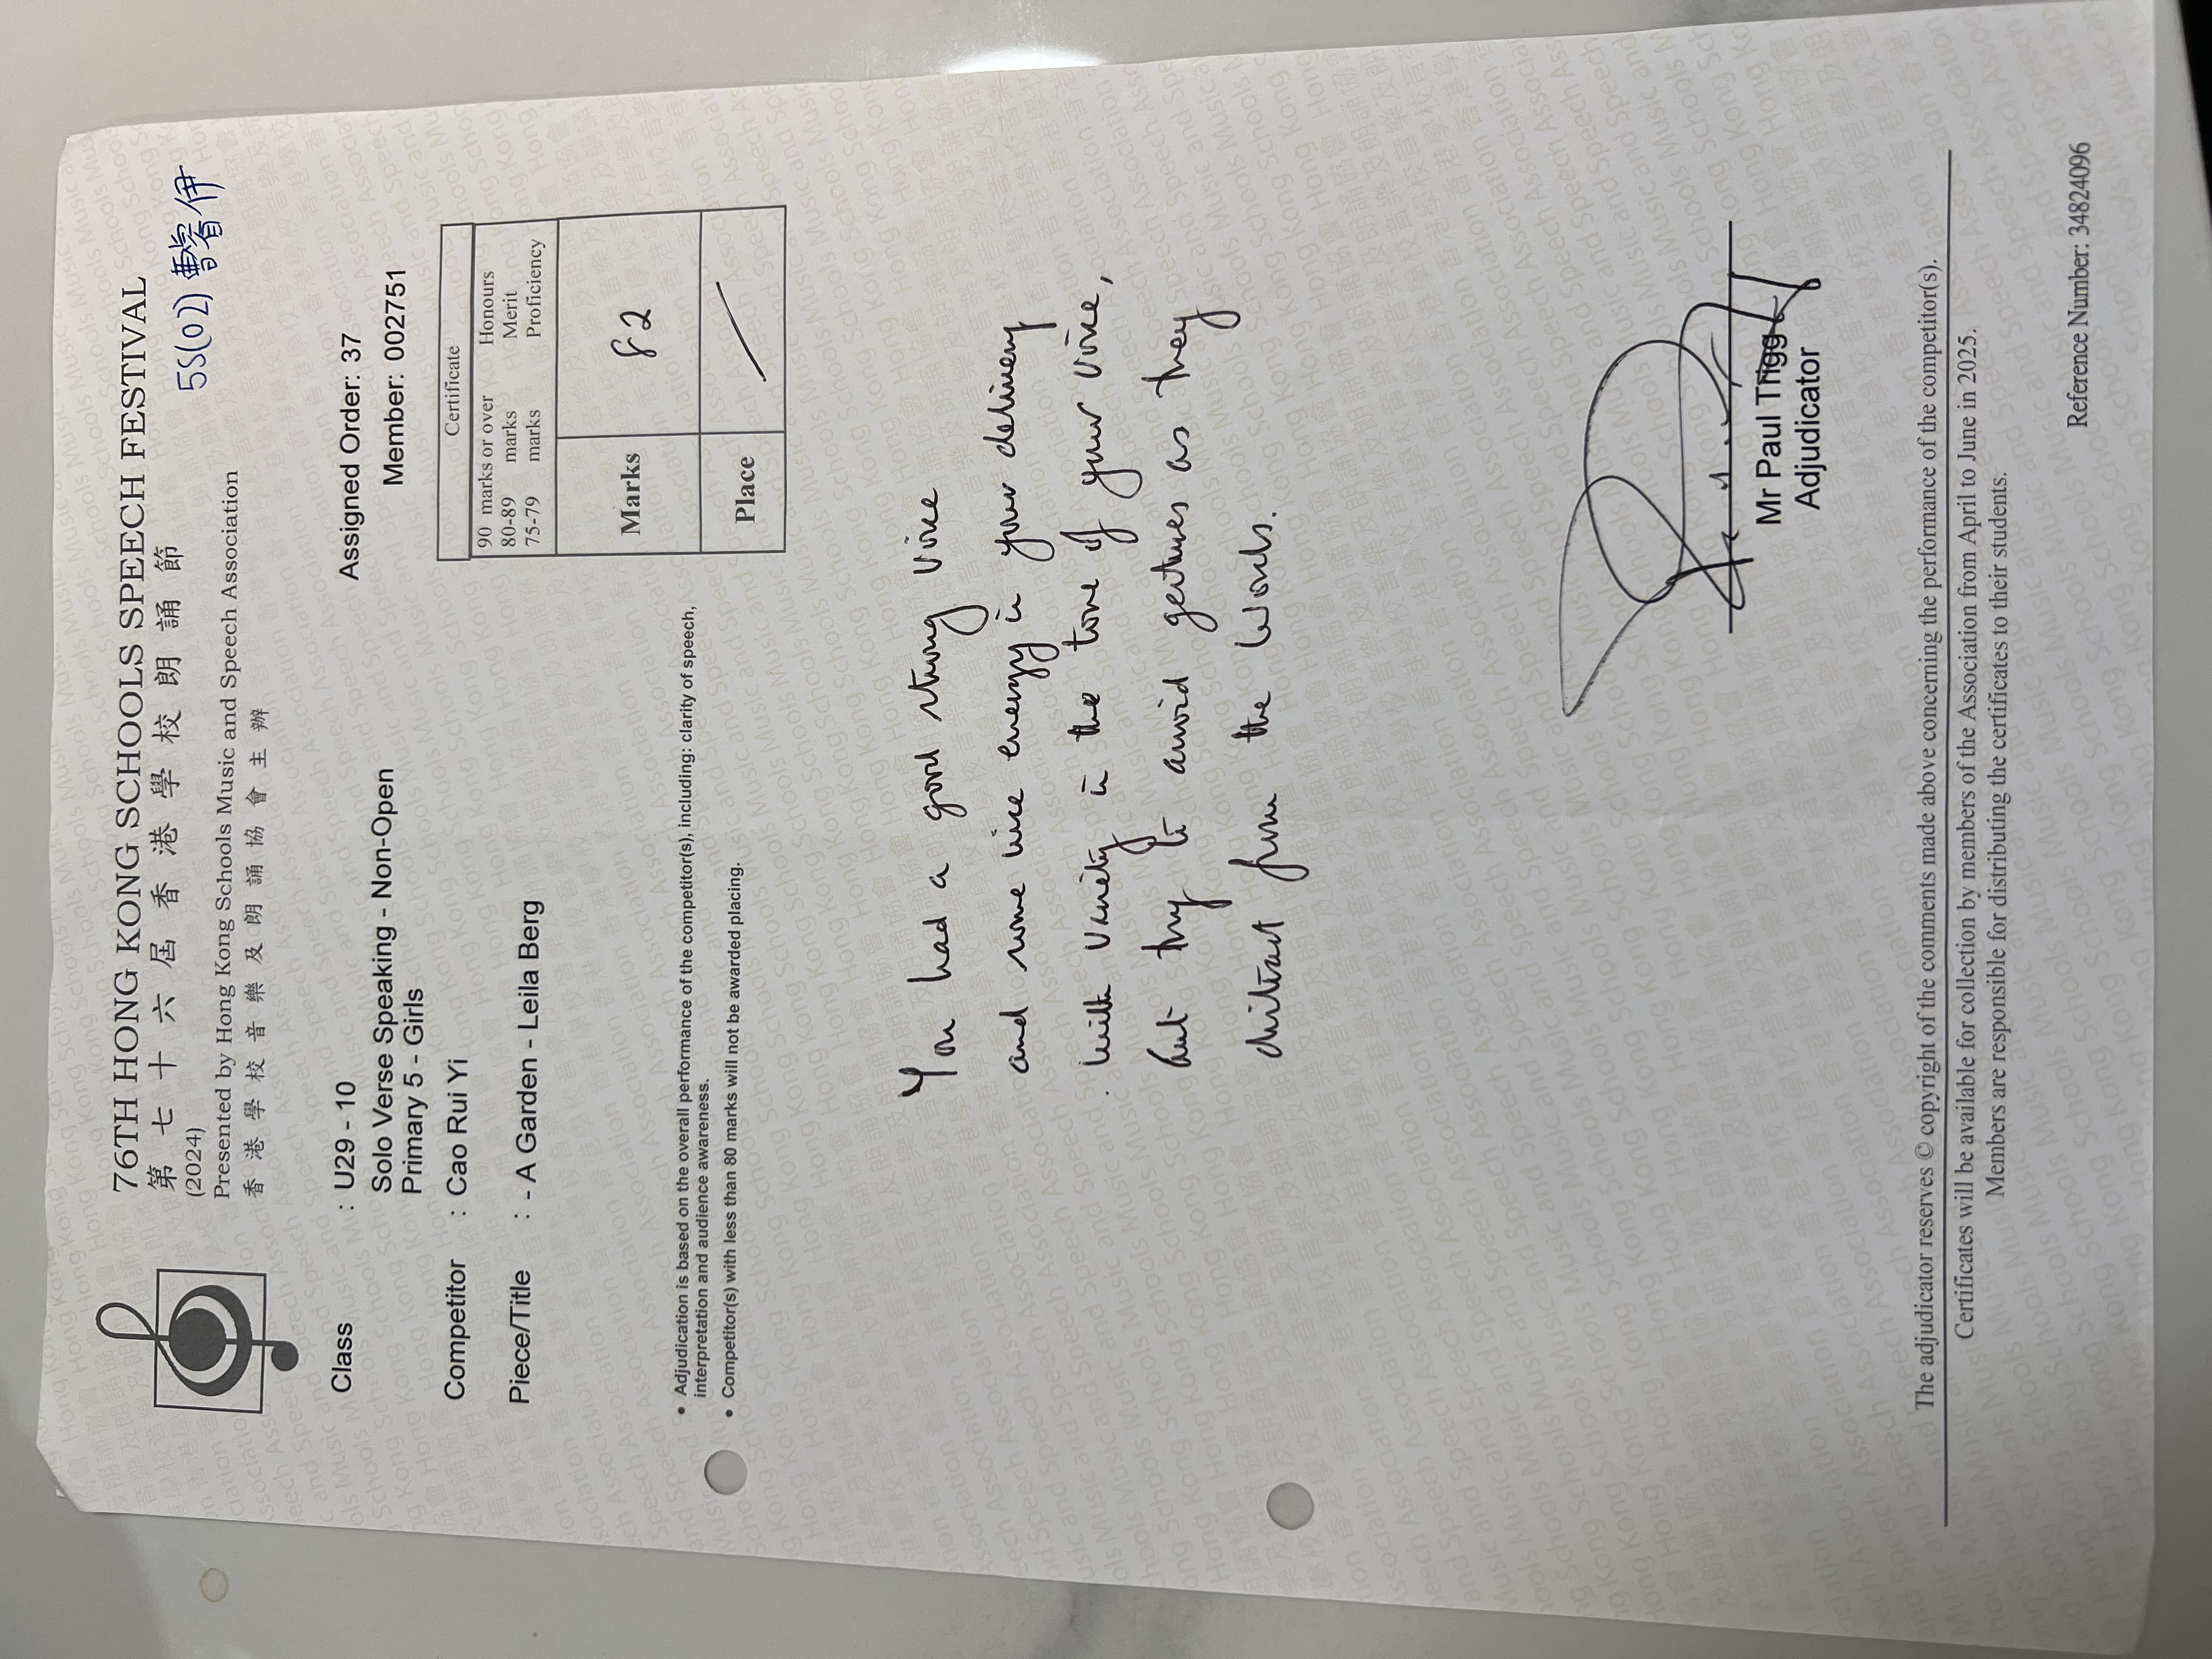 76TH HONG KONG SCHOOLS SPEECH FESTIVAL
第七十六屆香港學校朗誦節
(2024)
5S(02) 曹睿伊
Presented by Hong Kong Schools Music and Speech Association
香港學校音樂及朗誦協會主辦
Class : U29 - 10
Assigned Order: 37
Solo Verse Speaking - Non-Open
Member: 002751
Primary 5 - Girls
Competitor : Cao Rui Yi
Piece/Title : - A Garden - Leila Berg
Certificate
90 marks or over Honours
80-89 marks Merit
75-79 marks Proficiency
Marks 82
Place /
• Adjudication is based on the overall performance of the competitor(s), including: clarity of speech,
interpretation and audience awareness.
• Competitor(s) with less than 80 marks will not be awarded placing.
You had a good strong voice
and some nice energy in your delivery
with variety in the tone of your voice,
but try to avoid gestures as they
distract from the words.
Mr Paul Trigg
Adjudicator
The adjudicator reserves © copyright of the comments made above concerning the performance of the competitor(s).
Certificates will be available for collection by members of the Association from April to June in 2025.
Members are responsible for distributing the certificates to their students.
Reference Number: 34824096